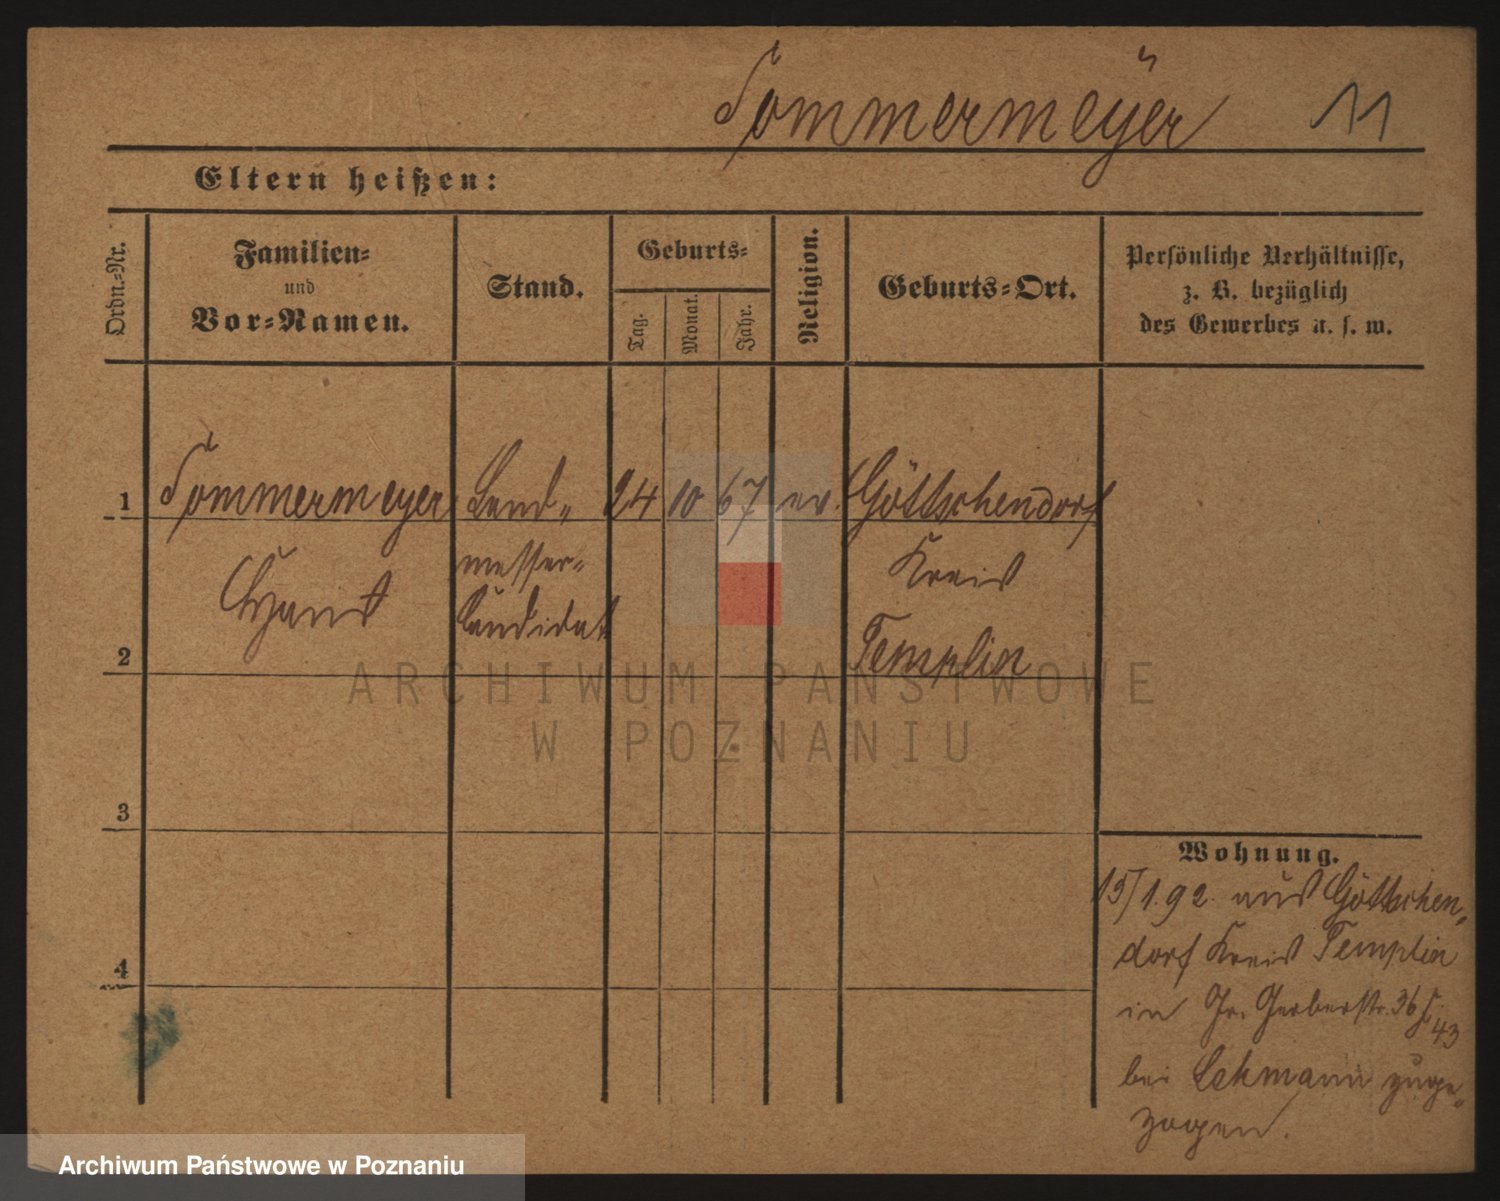 Sommermeÿer 11
Eltern heißen:
Ordn.-Nr.
Familien-
und
Vor-Namen.
Stand.
Geburts-
Tag.
Monat.
Jahr.
Religion.
Geburts-Ort.
Persönliche Verhältnisse,
z. B. bezüglich
des Gewerbes u. s. w.
1 Sommermeyer Land- 24 10 67 ev. Göttschendorf
messer- Kreis
kandidat
2 Templin
3
4
Wohnung.
15/1.92. aus Göttschen-
dorf Kreis Templin
in Gr. Gerberstr. 36
43
bei Lehmann zuge-
zogen.
ARCHIWUM PAŃSTWOWE
W POZNANIU
Archiwum Państwowe w Poznaniu